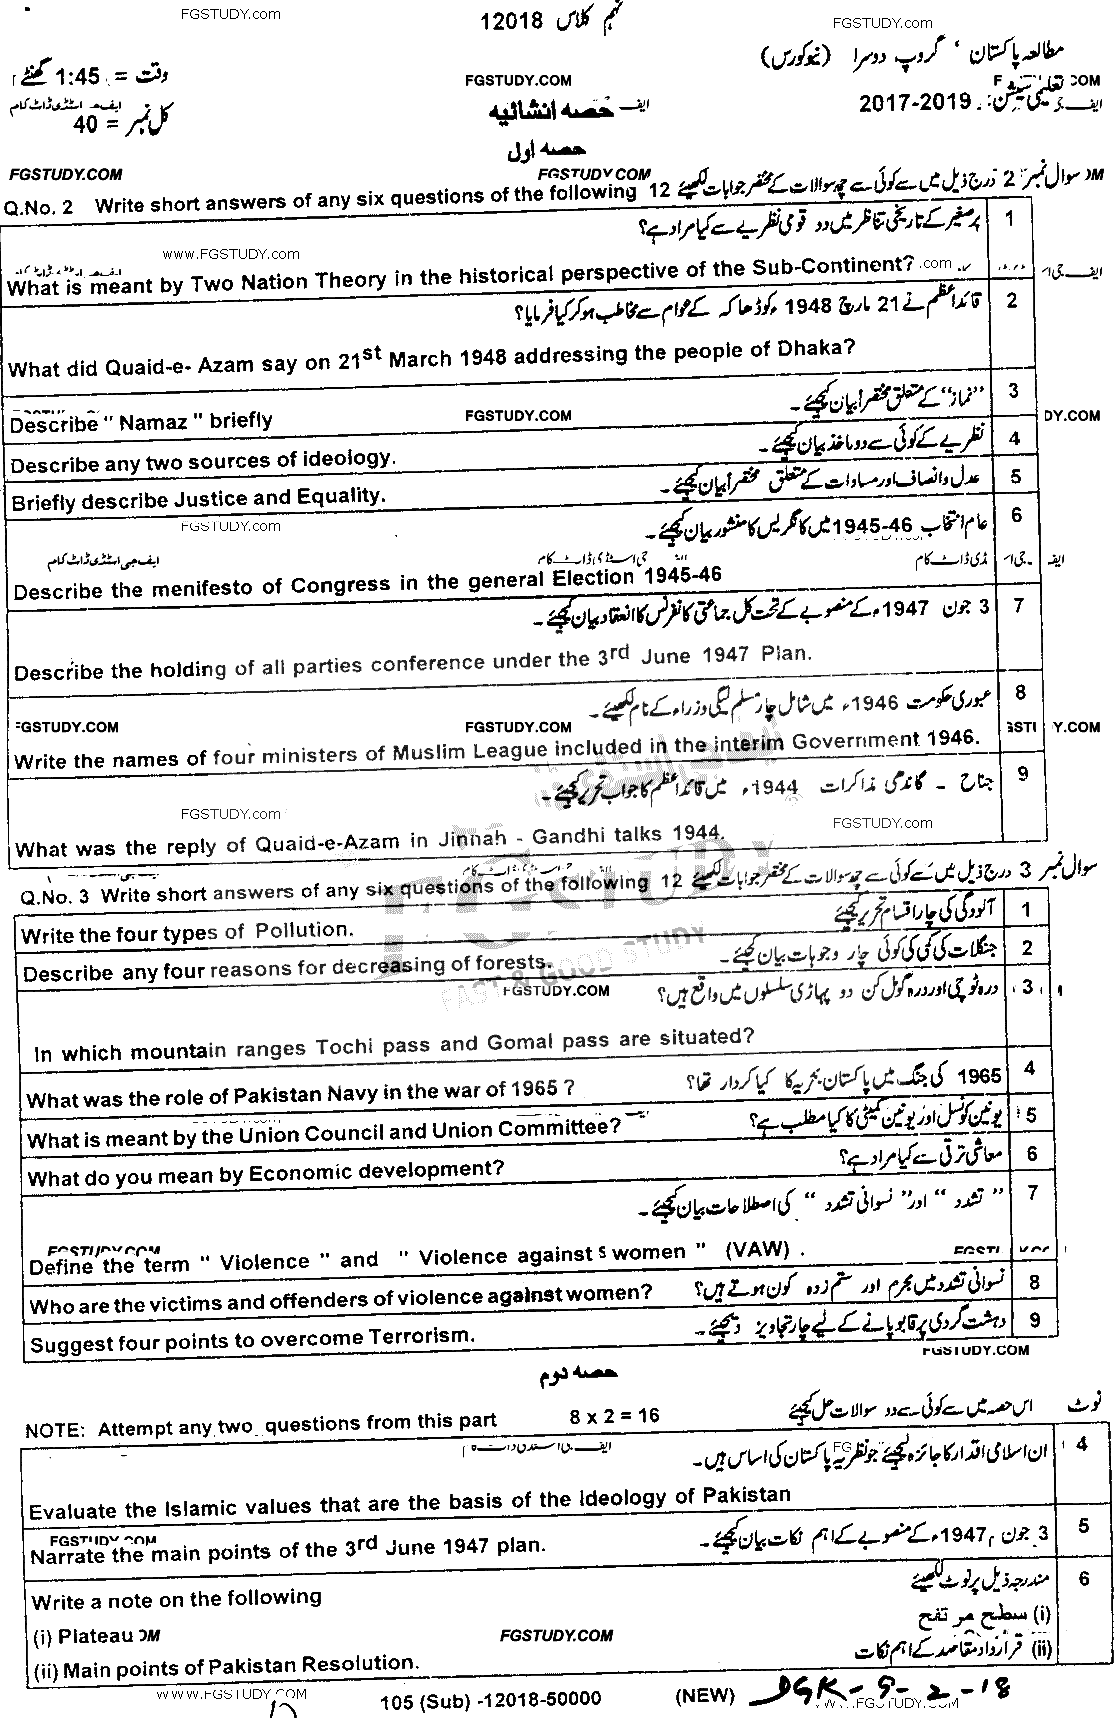 FGSTUDY.COM
نہم کلاس 12018
FGSTUDY.COM
مطالعہ پاکستان ، گروپ دوسرا (نیوکورس)
وقت = 1:45 گھنٹے
FGSTUDY.COM
تعلیمی سیشن: 2017-2019
کل نمبر = 40
حصہ انشائیہ
حصہ اول
FGSTUDY.COM
FGSTUDY.COM
سوال نمبر 2 درج ذیل میں سے کوئی سے چھ سوالات کے مختصر جوابات لکھیئے 12
Q.No. 2 Write short answers of any six questions of the following
1 برصغیر کے تاریخی تناظر میں دو قومی نظریے سے کیا مراد ہے؟
www.FGSTUDY.com
What is meant by Two Nation Theory in the historical perspective of the Sub-Continent?
2 قائداعظم نے 21 مارچ 1948ء کو ڈھاکہ کے عوام سے مخاطب ہو کر کیا فرمایا؟
What did Quaid-e- Azam say on 21st March 1948 addressing the people of Dhaka?
3 "نماز" کے متعلق مختصراً بیان کیجیئے۔
Describe " Namaz " briefly
FGSTUDY.COM
4 نظریے کے کوئی سے دو ماخذ بیان کیجیئے۔
Describe any two sources of ideology.
5 عدل و انصاف اور مساوات کے متعلق مختصراً بیان کیجیئے۔
Briefly describe Justice and Equality.
FGSTUDY.com
6 عام انتخاب 1945-46 میں کانگریس کا منشور بیان کیجیئے۔
ایف جی اسٹڈی ڈاٹ کام
Describe the menifesto of Congress in the general Election 1945-46
7 3 جون 1947ء کے منصوبے کے تحت کل جماعتی کانفرنس کا انعقاد بیان کیجیئے۔
Describe the holding of all parties conference under the 3rd June 1947 Plan.
8 عبوری حکومت 1946ء میں شامل چار مسلم لیگی وزراء کے نام لکھیئے۔
FGSTUDY.COM
FGSTUDY.COM
Write the names of four ministers of Muslim League included in the interim Government 1946.
9 جناح - گاندھی مذاکرات 1944ء میں قائداعظم کا جواب تحریر کیجیئے۔
FGSTUDY.com
FGSTUDY.com
What was the reply of Quaid-e-Azam in Jinnah - Gandhi talks 1944.
سوال نمبر 3 درج ذیل میں سے کوئی سے چھ سوالات کے مختصر جوابات لکھیئے 12
Q.No. 3 Write short answers of any six questions of the following
1 آلودگی کی چار اقسام تحریر کیجیئے
Write the four types of Pollution.
2 جنگلات کی کمی کی کوئی چار وجوہات بیان کیجیئے۔
Describe any four reasons for decreasing of forests.
FAST & GOOD STUDY
FGSTUDY.COM
3 درہ ٹوچی اور درہ گومل کن دو پہاڑی سلسلوں میں واقع ہیں؟
In which mountain ranges Tochi pass and Gomal pass are situated?
4 1965 کی جنگ میں پاکستان بحریہ کا کیا کردار تھا؟
What was the role of Pakistan Navy in the war of 1965 ?
5 یونین کونسل اور یونین کمیٹی کا کیا مطلب ہے؟
What is meant by the Union Council and Union Committee?
6 معاشی ترقی سے کیا مراد ہے؟
What do you mean by Economic development?
7 "تشدد" اور "نسوانی تشدد" کی اصطلاحات بیان کیجیئے۔
Define the term " Violence " and " Violence against women " (VAW) .
8 نسوانی تشدد میں مجرم اور ستم زدہ کون ہوتے ہیں؟
Who are the victims and offenders of violence against women?
9 دہشت گردی پر قابو پانے کے لیے چار تجاویز دیجیئے۔
Suggest four points to overcome Terrorism.
FGSTUDY.COM
حصہ دوم
نوٹ اس حصہ میں سے کوئی سے دو سوالات حل کیجیئے
NOTE: Attempt any two questions from this part 8 x 2 = 16
4 ان اسلامی اقدار کا جائزہ لیجیئے جو نظریہ پاکستان کی اساس ہیں۔
Evaluate the Islamic values that are the basis of the Ideology of Pakistan
5 3 جون 1947ء کے منصوبے کے اہم نکات بیان کیجیئے۔
FGSTUDY.COM
Narrate the main points of the 3rd June 1947 plan.
6 مندرجہ ذیل پر نوٹ لکھیئے
Write a note on the following
(i) سطح مرتفع
(i) Plateau
FGSTUDY.COM
(ii) قرارداد مقاصد کے اہم نکات
(ii) Main points of Pakistan Resolution.
WWW.FGSTUDY.COM
105 (Sub) -12018-50000 (NEW) DGK-9-2-18